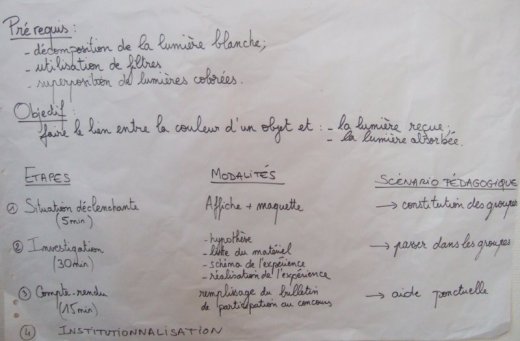 Prérequis :
- décomposition de la lumière blanche;
- utilisation de filtres
- superposition de lumières colorées.
Objectif :
faire le lien entre la couleur d'un objet et : - la lumière reçue;
- la lumière absorbée.
ETAPES MODALITÉS SCÉNARIO PÉDAGOGIQUE
① Situation déclenchante Affiche + maquette → constitution des groupes
(5min)
② Investigation - hypothèse → passer dans les groupes
(30min) - liste du matériel
- schéma de l'expérience
- réalisation de l'expérience
③ Compte-rendu remplissage du bulletin → aide ponctuelle
(15min) de participation au concours
④ INSTITUTIONNALISATION